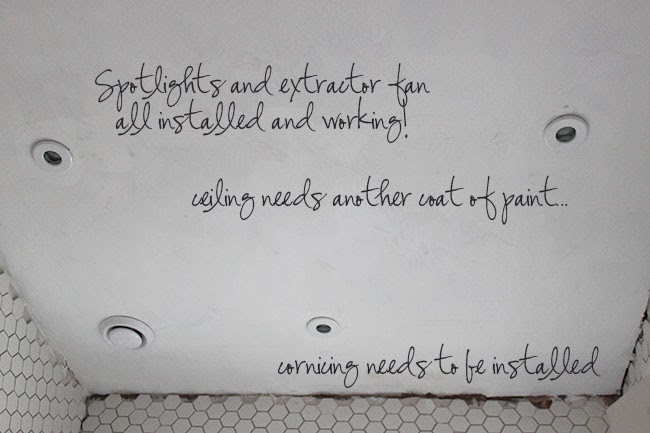 Spotlights and extractor fan
all installed and working!
ceiling needs another coat of paint...
cornicing needs to be installed